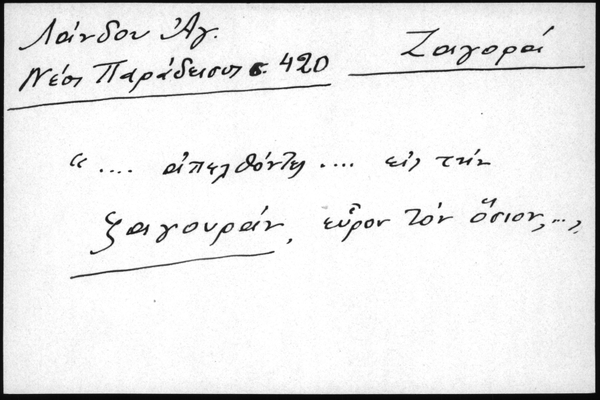 Λάνδου Ἀγ.
Νέος Παράδεισος σ. 420
Ζαγορά
“.... ἀπελθόντες .... εἰς τὴν
ζαγουράν, εὗρον τὸν ὅσιον,...,